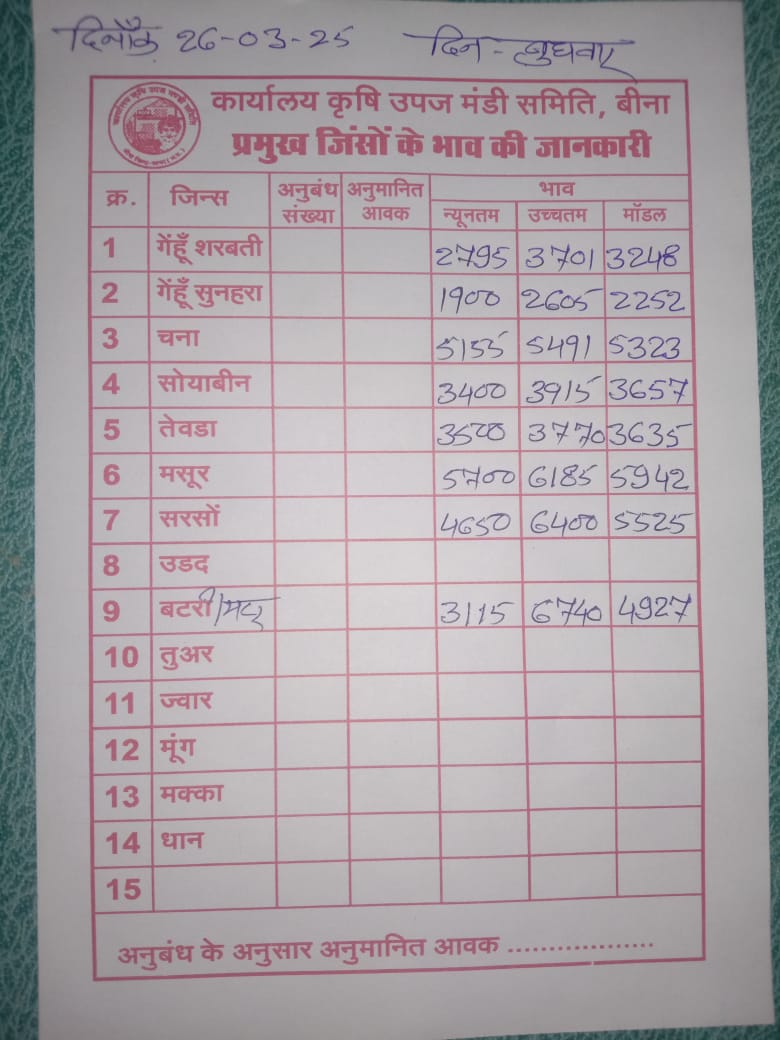 दिनाँक 26-03-25 दिन - बुधवार
कार्यालय कृषि उपज मंडी समिति, बीना
प्रमुख जिंसों के भाव की जानकारी
क्र. जिन्स अनुबंध संख्या अनुमानित आवक भाव
न्यूनतम उच्चतम मॉडल
1 गेंहूँ शरबती 2795 3701 3248
2 गेंहूँ सुनहरा 1900 2605 2252
3 चना 5155 5491 5323
4 सोयाबीन 3400 3915 3657
5 तेवडा 3500 3770 3635
6 मसूर 5700 6185 5942
7 सरसों 4650 6400 5525
8 उडद
9 बटरी/मटर 3115 6740 4927
10 तुअर
11 ज्वार
12 मूंग
13 मक्का
14 धान
15
अनुबंध के अनुसार अनुमानित आवक ..................